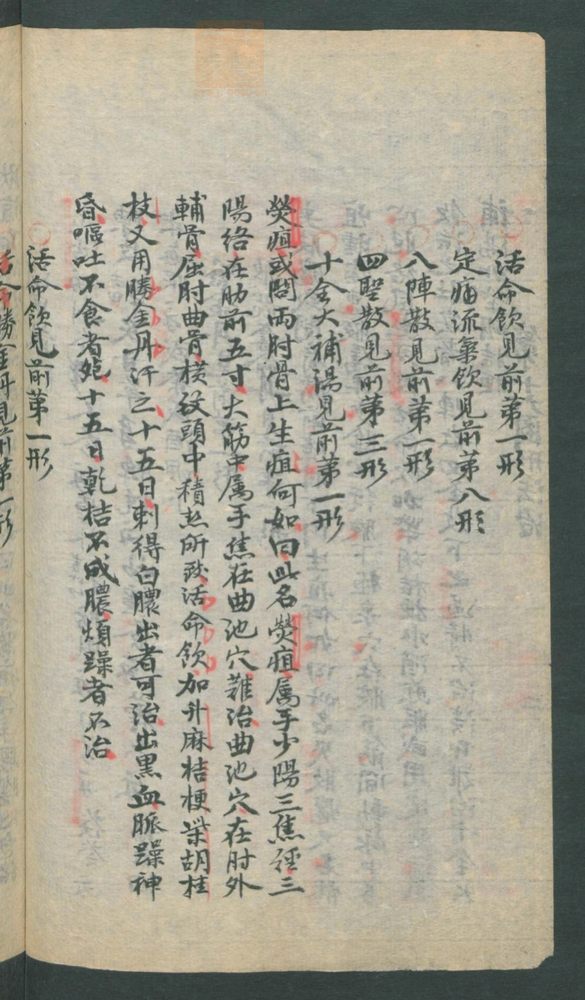 活命飲見前第一形
定痛流氣飲見前第八形
八陣散見前第一形
四聖散見前第三形
十全大補湯見前第一形
熒疽或問两肘骨上生疽何如曰此名熒疽属手少陽三焦徑三
陽絡在肋前五寸大筋中属手焦在曲池穴難治曲池穴在肘外
輔骨屈肘曲骨横紋頭中積热所致活命飲加升麻桔梗柴胡桂
枝又用勝金丹汗之十五日刺得白膿出者可治出黒血脈躁神
昏嘔吐不食者死十五日乾枯不成膿煩躁者不治
活命飲見前第一形
活命勝金丹見前第一形